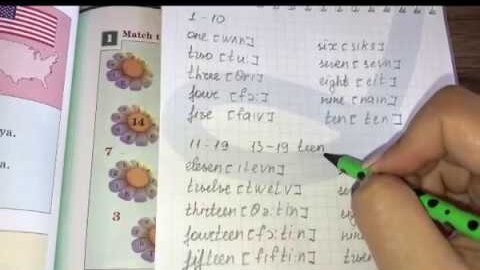 1 Match t
14
7
3
ya.
1-10
one [wʌn]
two [tu:]
three [θri]
four [fɔ:]
five [faiv]
six [siks]
seven [sevn]
eight [eit]
nine [nain]
ten [ten]
11-19 13-19 teen
eleven [ılevn]
twelve [twelv]
thirteen [θɜ:tin]
fourteen [fɔ:ti:n]
fifteen [fıfti:n]